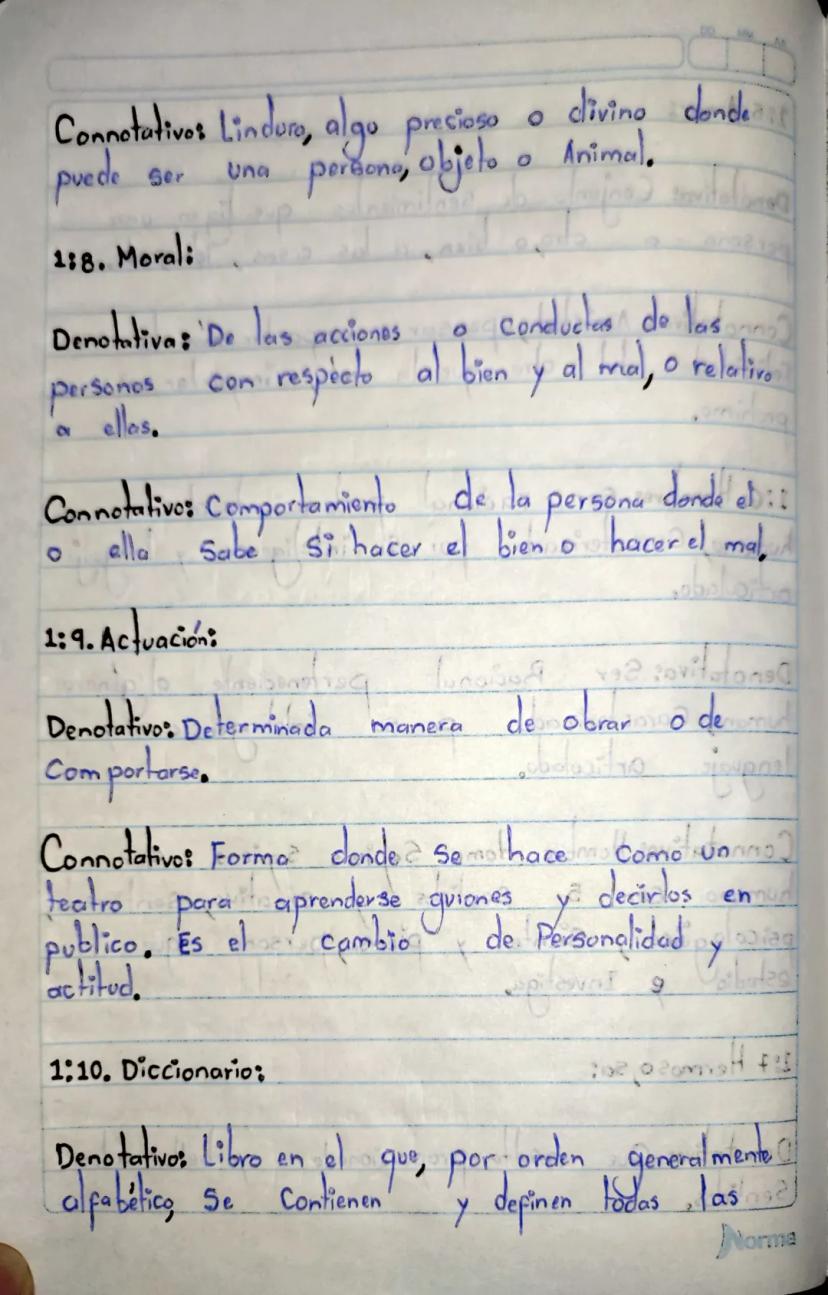 Connotativo: Lindura, algo precioso o divino donde
puede ser una persona, objeto o Animal.
1:8. Moral:
Denotativa: De las acciones o conductas de las
personas con respecto al bien y al mal, o relativo
a ellas.
Connotativo: Comportamiento de la persona donde el
o ella sabe si hacer el bien o hacer el mal.
1:9. Actuación:
Denotativo: Determinada manera de obrar o de
Comportarse.
Connotativo: Forma donde se hace como un
teatro para aprenderse guiones y decirlos en
publico. Es el cambio de Personalidad y
actitud.
1:10. Diccionario:
Denotativo: Libro en el que, por orden generalmente
alfabético, Se Contienen y definen todas las
Norma